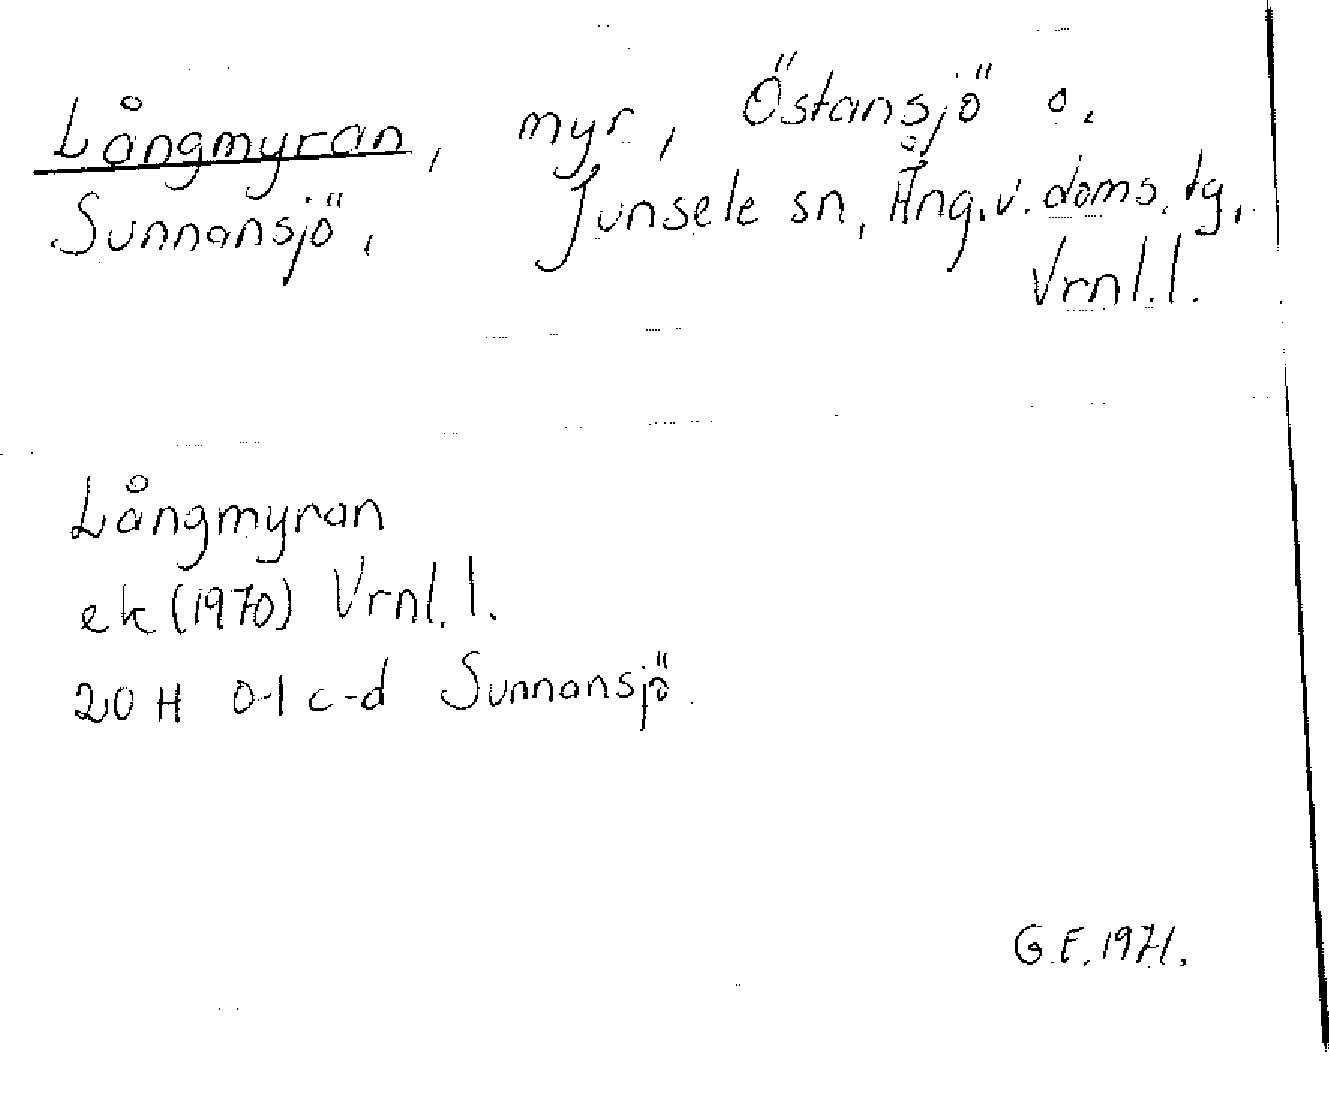 Långmyran, myr, Östansjö o.
Sunnansjö, Junsele sn, Ång.v.doms.tg,
Vrnl.l.
Långmyran
ek (1970) Vrnl.l.
20 H 0-1 c-d Sunnansjö.
G.F. 1971.